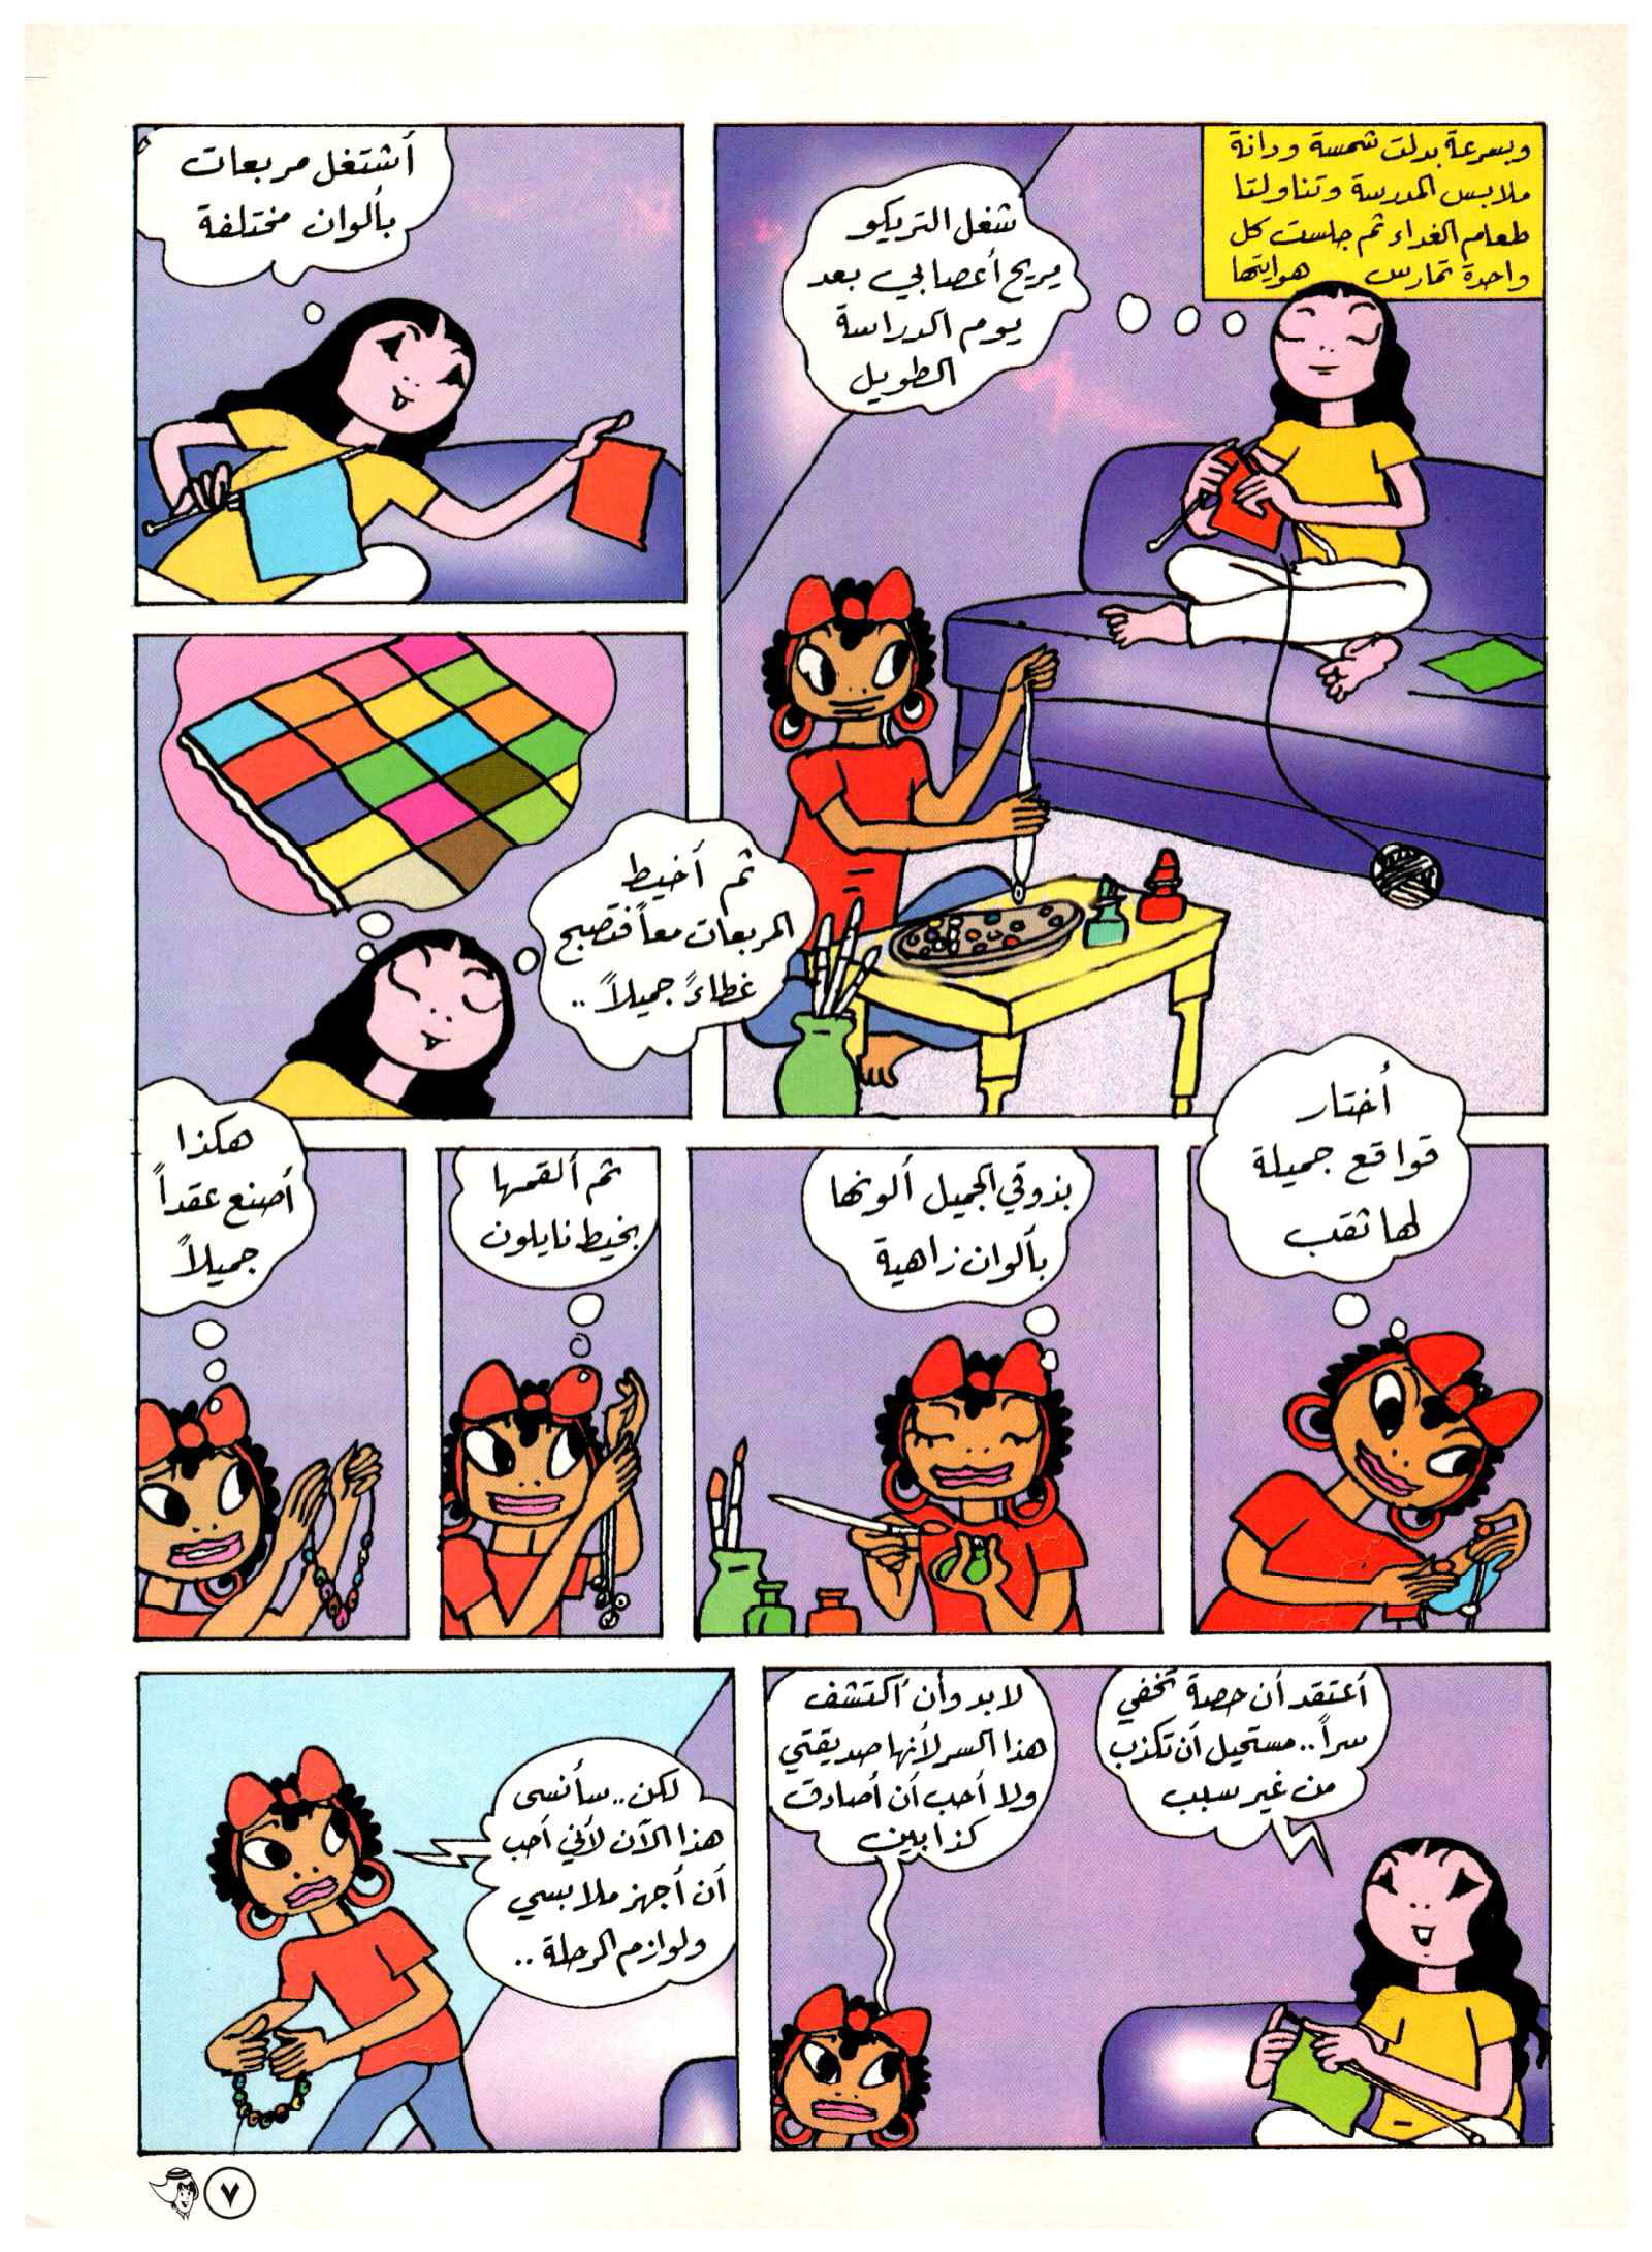 وبسرعة بدلت شمسة ودانة
ملابس المدرسة وتناولتا
طعام الغداء ثم جلست كل
واحدة تمارس هوايتها
شغل التريكو
يريح أعصابي بعد
يوم الدراسة
الطويل
أشتغل مربعات
بألوان مختلفة
ثم أخيط
المربعات معاً فتصبح
غطاءً جميلاً ..
أختار
قواقع جميلة
لها ثقب
بذوقي الجميل ألونها
بألوان زاهية
ثم ألقمها
بخيط نايلون
هكذا
أصنع عقداً
جميلاً
أعتقد أن حصة تخفي
سراً .. مستحيل أن تكذب
من غير سبب
لابد وأن أكتشف
هذا السر لأنها صديقتي
ولا أحب أن أصادق
كذابين
لكن .. سأنسى
هذا الآن لأني أحب
أن أجهز ملابسي
ولوازم الرحلة ..
٧